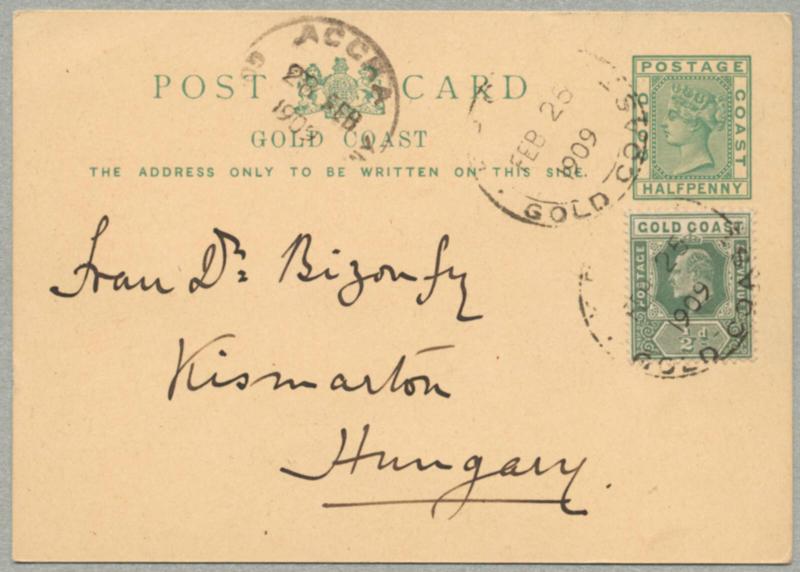 POST CARD
GOLD COAST
THE ADDRESS ONLY TO BE WRITTEN ON THIS SIDE.
ACCRA
26 FEB
1909
FEB 26
1909
GOLD COAST
POSTAGE
GOLD COAST
HALFPENNY
GOLD COAST
POSTAGE
½d
26
1909
GOLD COAST
Frau Dr. Bizonfy
Kismarton
Hungary.